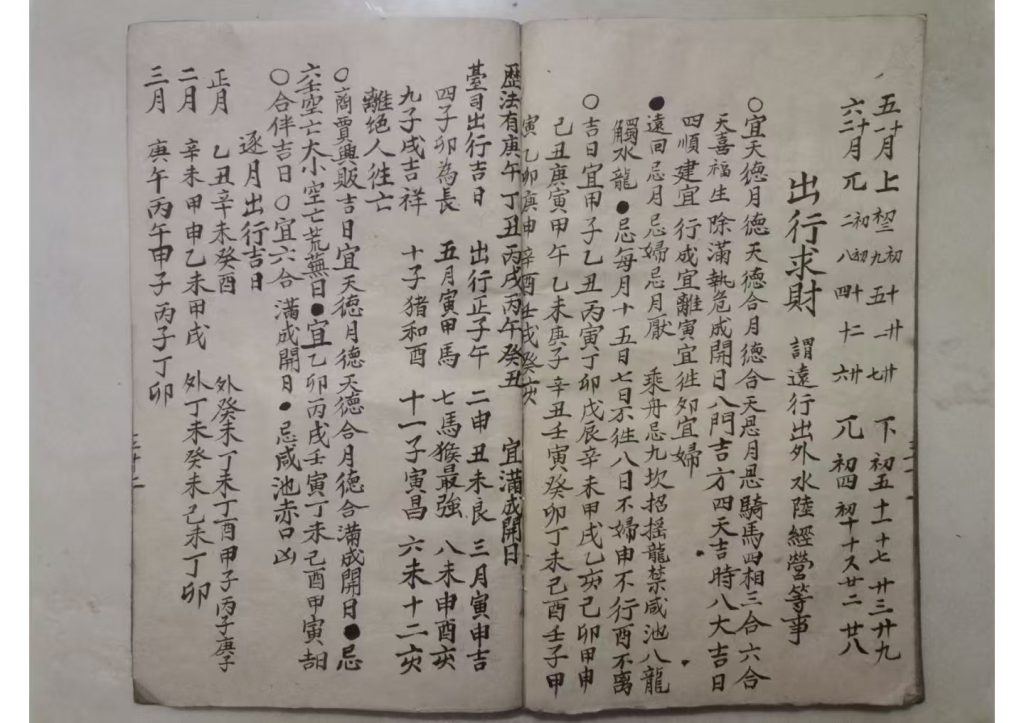 五十一月 上 初三 初九 五 十一 廿七 下 初五 十一 十七 廿三 廿九
六十二月 兀 初二 初八 十四 十二 廿六 兀 初四 初十 十六 廿二 廿八
出行求財 謂遠行出外水陸經營等事
○宜天德月德天德合月德合天恩月恩騎馬四相三合六合
天喜福生除滿執危成開日八門吉方四天吉時八大吉日
四順建宜行成宜離寅宜徃夘宜婦
●遠回忌月忌婦忌月厭 乘舟忌九坎招摇龍禁咸池八龍
觸水龍●忌每月十五日七日不徃八日不婦申不行酉不离
○吉日宜甲子乙丑丙寅丁卯戊辰辛未甲戌乙亥己卯甲申
己丑庚寅甲午乙未庚子辛丑壬寅癸卯丁未己酉壬子甲
寅乙卯庚申辛酉壬戌癸亥
歴法有庚午丁丑丙戌丙午癸丑 宜滿成開日
臺司出行吉日 出行正子午 二申丑未良 三月寅申吉
四子卯為長 五月寅甲馬 七馬猴最強 八未申酉亥
九子戌吉祥 十子猪和酉 十一子寅昌 六未十二亥
離絕人徃亡
○商賈興販吉日宜天德月德天德合月德合滿成開日●忌
六壬空亡大小空亡荒蕪日●宜乙卯丙戌壬寅丁未己酉甲寅
○合伴吉日○宜六合 滿成開日●忌咸池赤口凶
逐月出行吉日
正月 乙丑辛未癸酉 外癸未丁未丁酉甲子丙子庚子
二月 辛未甲申乙未甲戌 外丁未癸未己未丁卯
三月 庚午丙午申子丙子丁卯
三十二